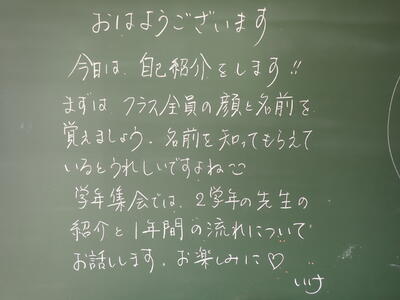 おはようございます
今日は、自己紹介をします!!
まずは、クラス全員の顔と名前を
覚えましょう。名前を知ってもらえて
いるとうれしいですよね
学年集会では、2学年の先生の
紹介と1年間の流れについて
お話しします。お楽しみに♡
いけ